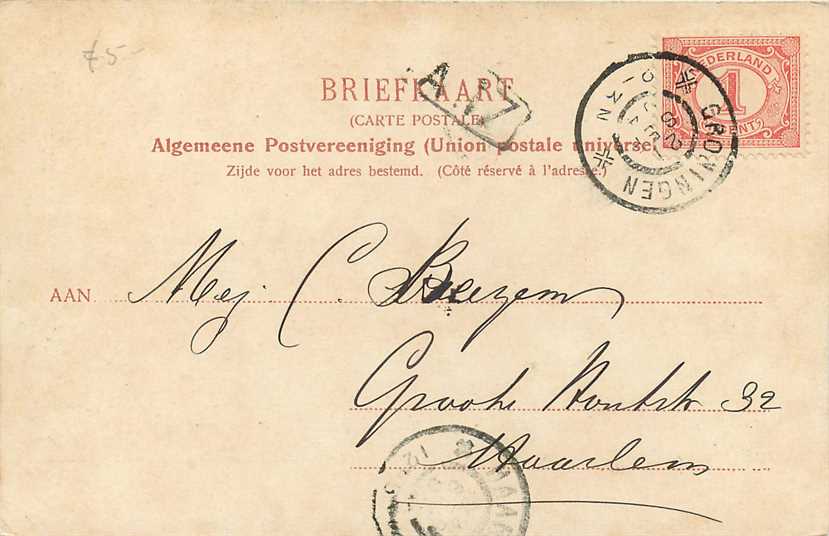 £5-
BRIEFKAART
(CARTE POSTALE)
Algemeene Postvereeniging (Union postale universelle)
Zijde voor het adres bestemd. (Côté réservé à l'adresse.)
NEDERLAND
1
CENT
GRONINGEN
A.Z
AAN Mej C. Beezem
Groote Houtstr 32
Haarlem
HAAR